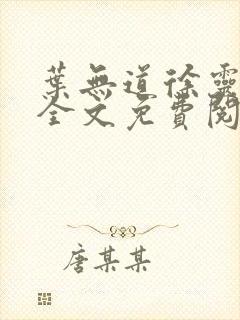 葉無道徐靈
全文免費閱
唐某某